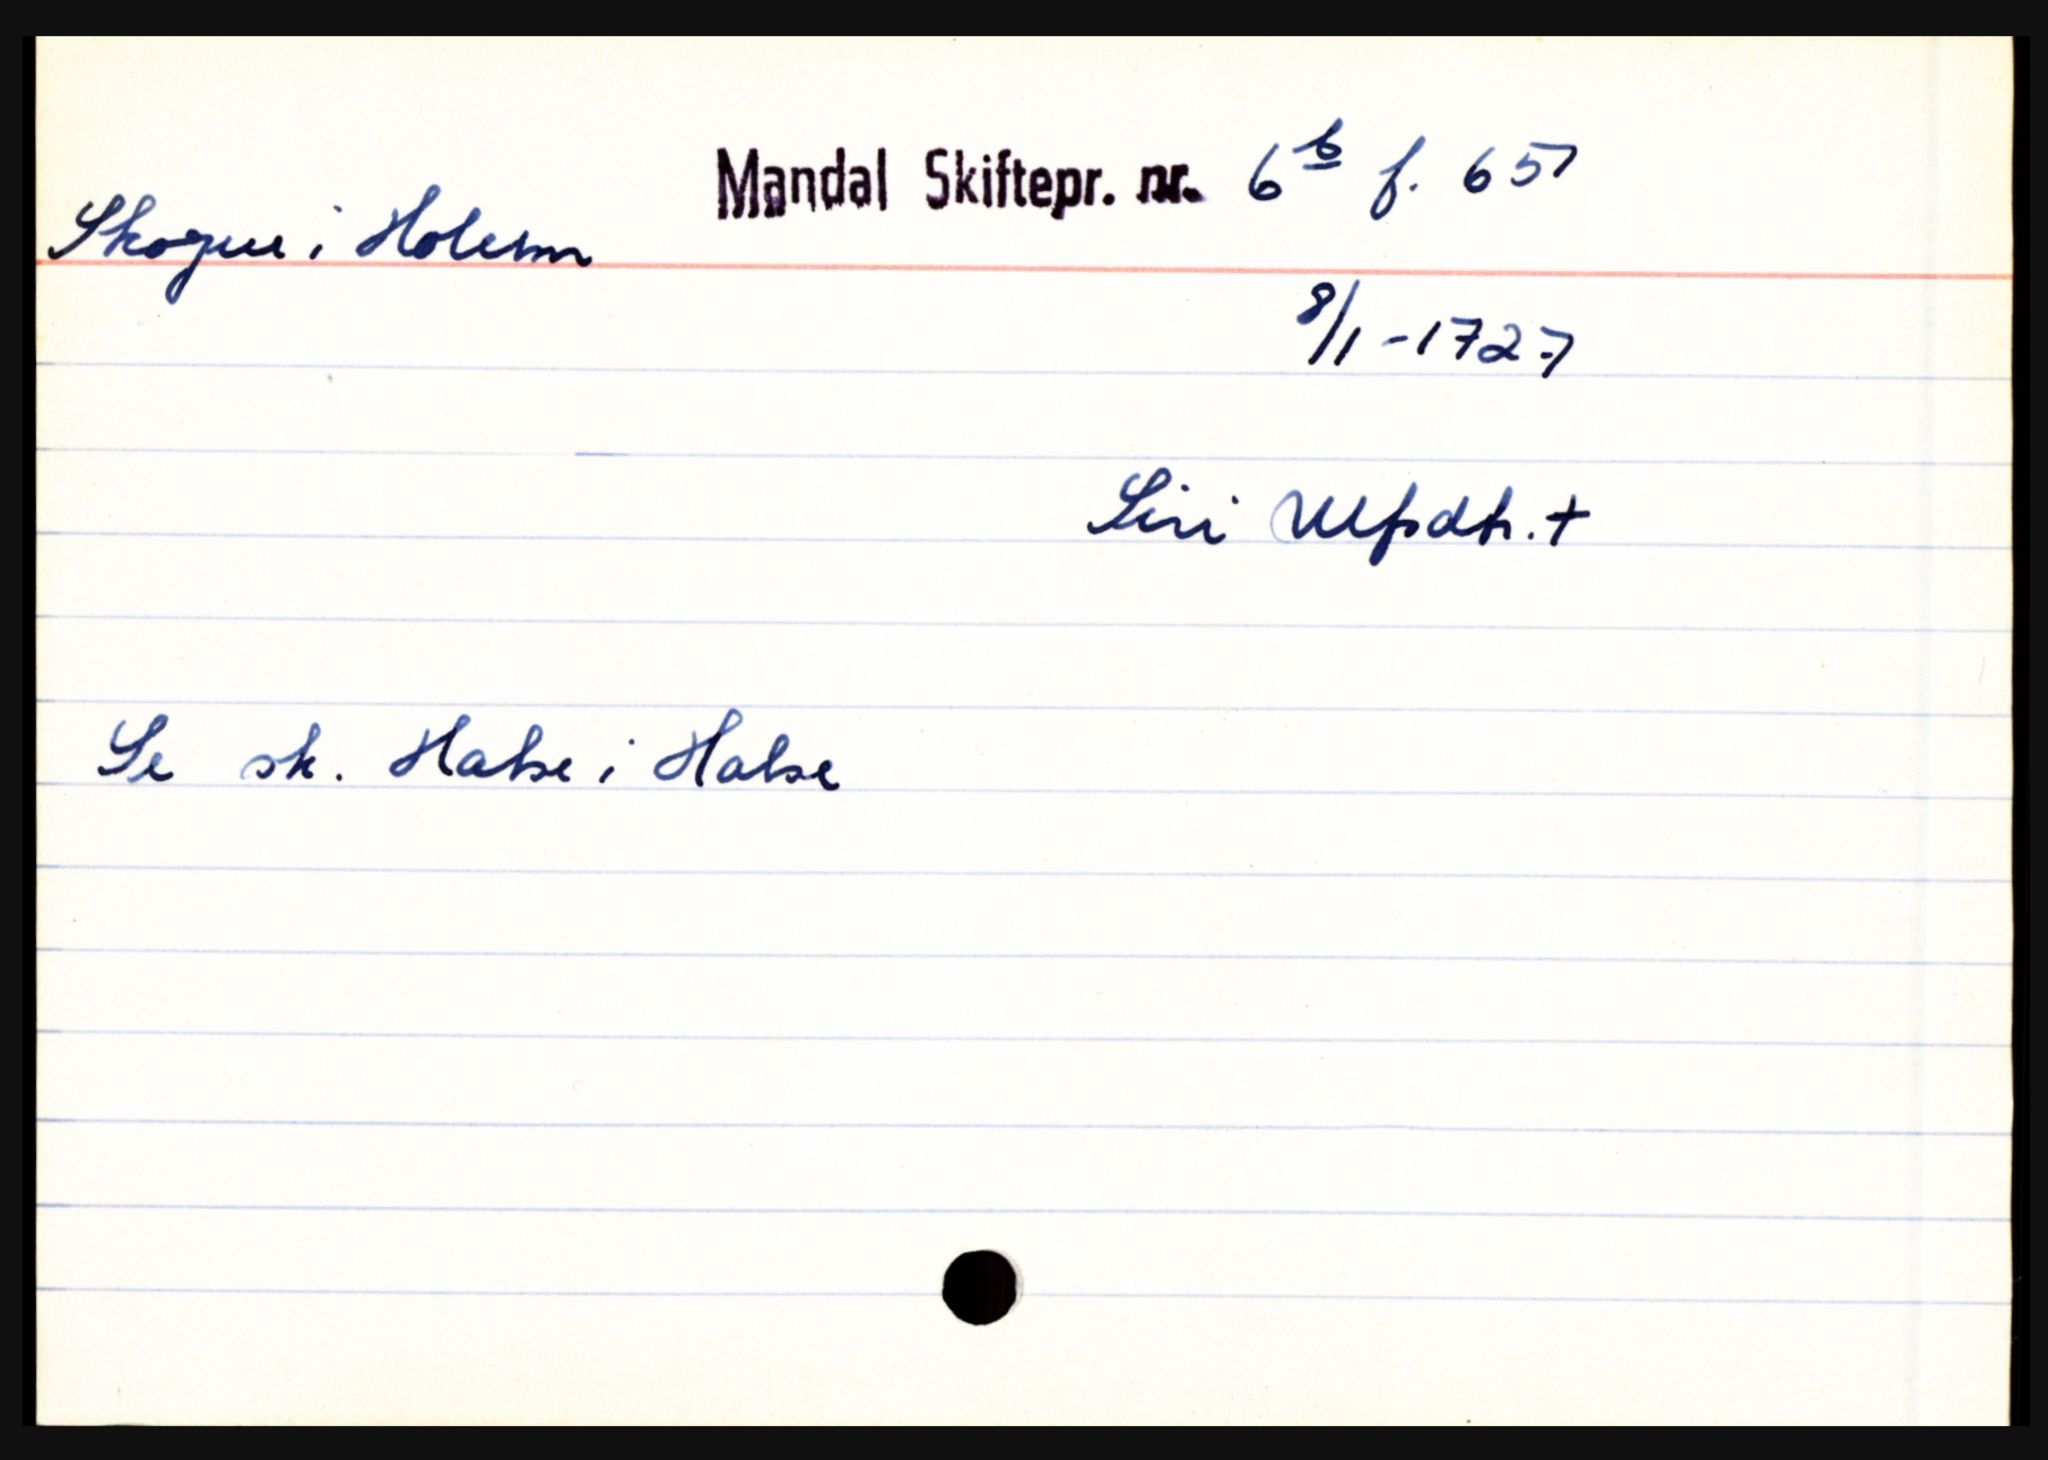 Mandal Skiftepr. nr. 6b f. 65
Skogen i Holum
8/1-1727
Siri Ulfsdtr. +
Se sk. Halse i Halse